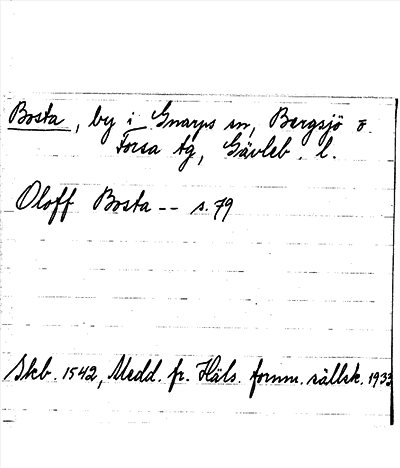 Bosta, by i Gnarps sn, Bergsjö o.
Forsa tg, Gävleb. l.
Oloff Bosta -- s. 79
Skb. 1542, Medd. fr. Häls. fornm. sällsk. 1933